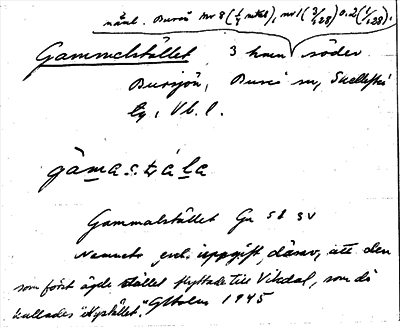 näml. Bureå nr 8 (1/4 mtl), nr 1 (3/128) o. 2 (1/128).
Gammelstället, 3 hmn söder
Bursjön, Bureå sn, Skellefteå
tg, Vb. l.
gàmastǻla
Gammalstället Gr St SV
Namnets enl. uppgift därav, att den
som först ägde stället flyttade till Vikdal, som då
kallades "Nystället". Gtholm 1945